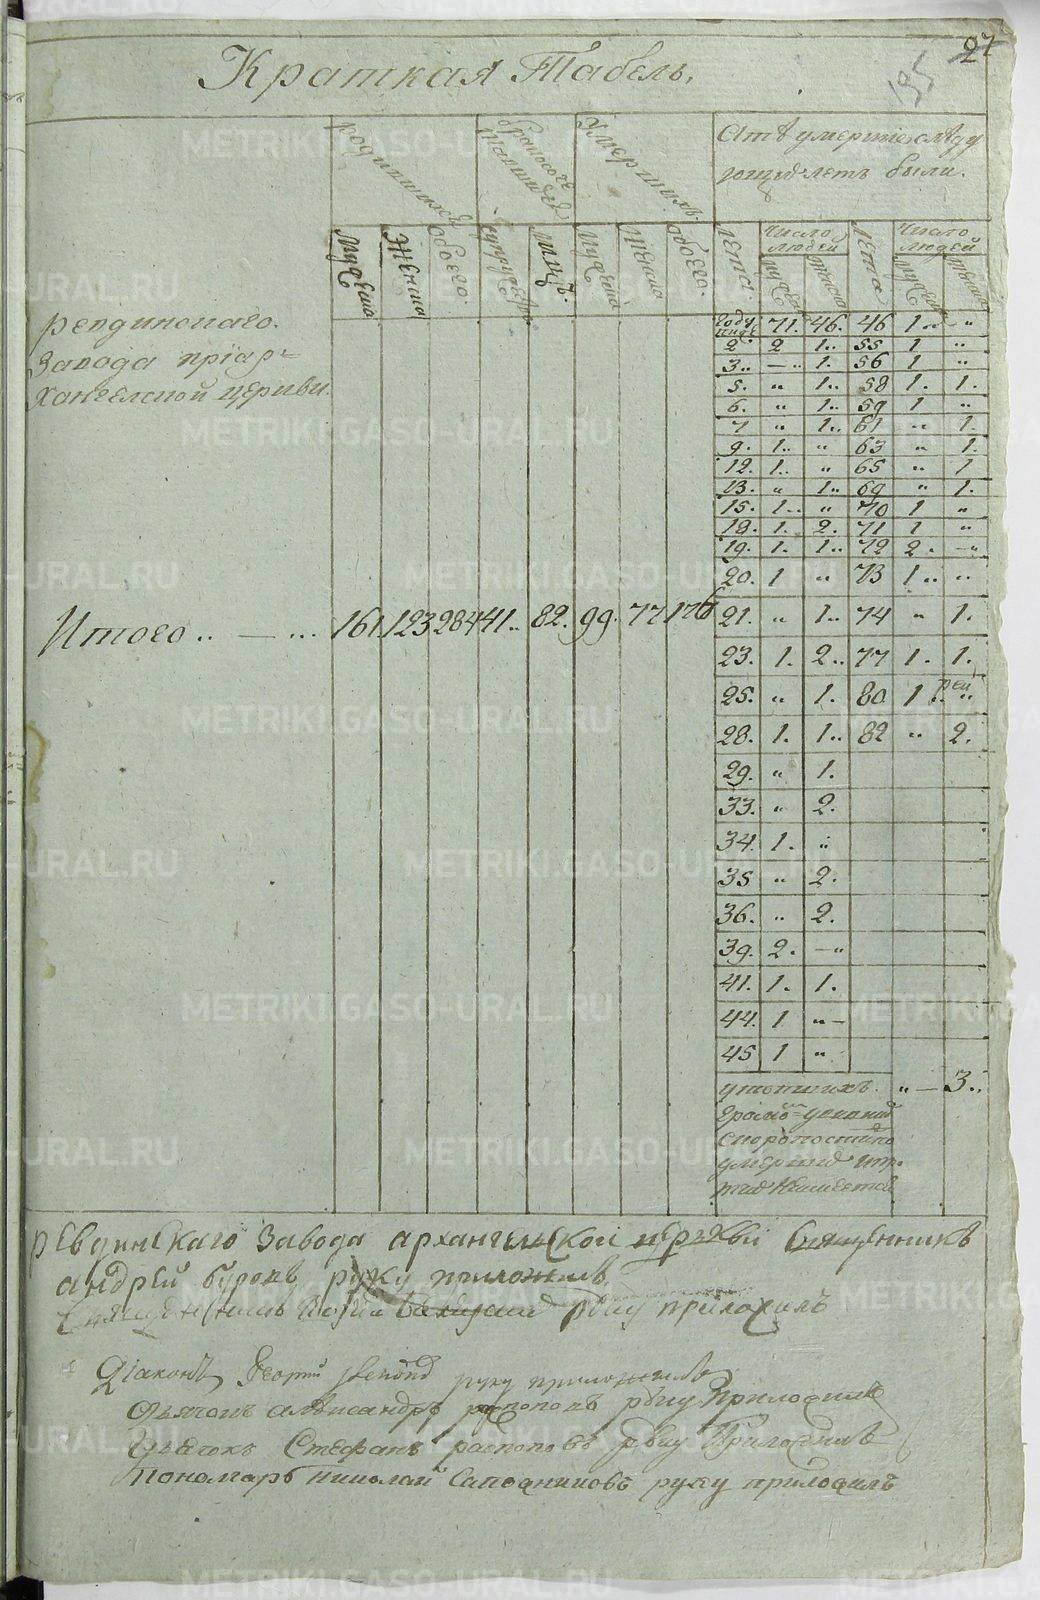 27
Краткая Табель,
родившихся
бракосоче
тавшихся
Умершихъ.
А тѣ умершие следу
ющихъ летъ были.
Мужеска
Женска
обоего.
супружествъ
лицъ.
Мужеска
Женска
обоего.
Лета.
Число людей
мужеска
женска
Лета
Число людей
мужеска
женска
Ревдинскаго.
Завода при ар=
хангелской церкви.
году 71. 46. 46 1.. "
2 2 1.. 55 1 "
3.. — " 1. 56 1 "
5. " 1.. 58 1. 1.
6. " 1.. 59 1 "
7 " 1.. 61 " 1.
9. 1.. " 63 " 1.
12. 1.. " 65 " 1
13. " 1.. 69 " 1.
15. 1.. " 70 1 "
18. 1. 2. 71 1 "
19. 1. 1.. 72 2. — "
20. 1 " 73 1.. "
Итого .. — ... 161. 123 284 41.. 82. 99. 77 176
21. " 1.. 74 " 1.
23. 1. 2.. 77 1. 1.
25. " 1. 80 1 "
28. 1. 1.. 82 " 2.
29. " 1.
33. " 2.
34. 1. "
35 " 2.
36. " 2.
39. 2. — "
41. 1. 1.
44. 1 " —
45 1 "
утопшихъ. " — 3..
скоропостижно
умерших
Ревдинскаго Завода архангельской церкви Священникъ
андрей буровъ руку приложилъ
Священникъ руку приложилъ
Діаконъ Георгий руку приложилъ
Дьячокъ александръ распоповъ руку Приложилъ
Дьячокъ Стефанъ распоповъ руку Приложилъ
Пономарь николай Сапожниковъ руку приложилъ
METRIKI.GASO-URAL.RU